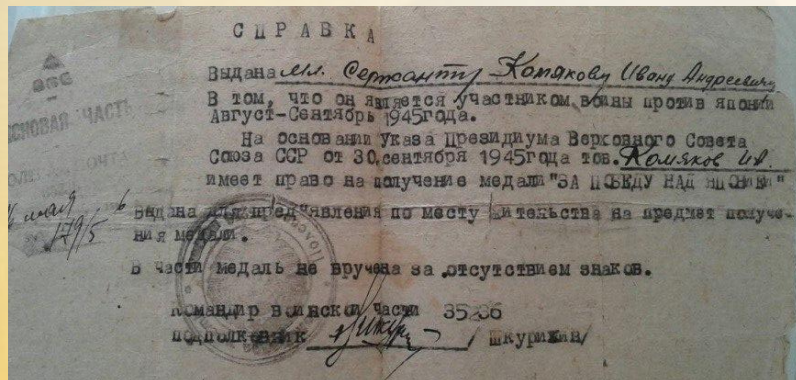 СПРАВКА
Выдана мл. Сержанту Комякову Ивану Андреевичу
В том, что он является участником войны против японии
Август-Сентябрь 1945года.
На основании Указа Президиума Верховного Совета
Союза ССР от 30.сентября 1945года тов. Комяков И.А.
имеет право на получение медали "ЗА ПОБЕДУ НАД ЯПОНИЕЙ"
Выдана для предъявления по месту жительства на предмет получе-
ния медали.
В части медаль не вручена за отсутствием знаков.
Командир воинской части 35206
подполковник / Шкурихин/
ВОЙСКОВАЯ ЧАСТЬ
ПОЛЕВАЯ ПОЧТА
мая 6